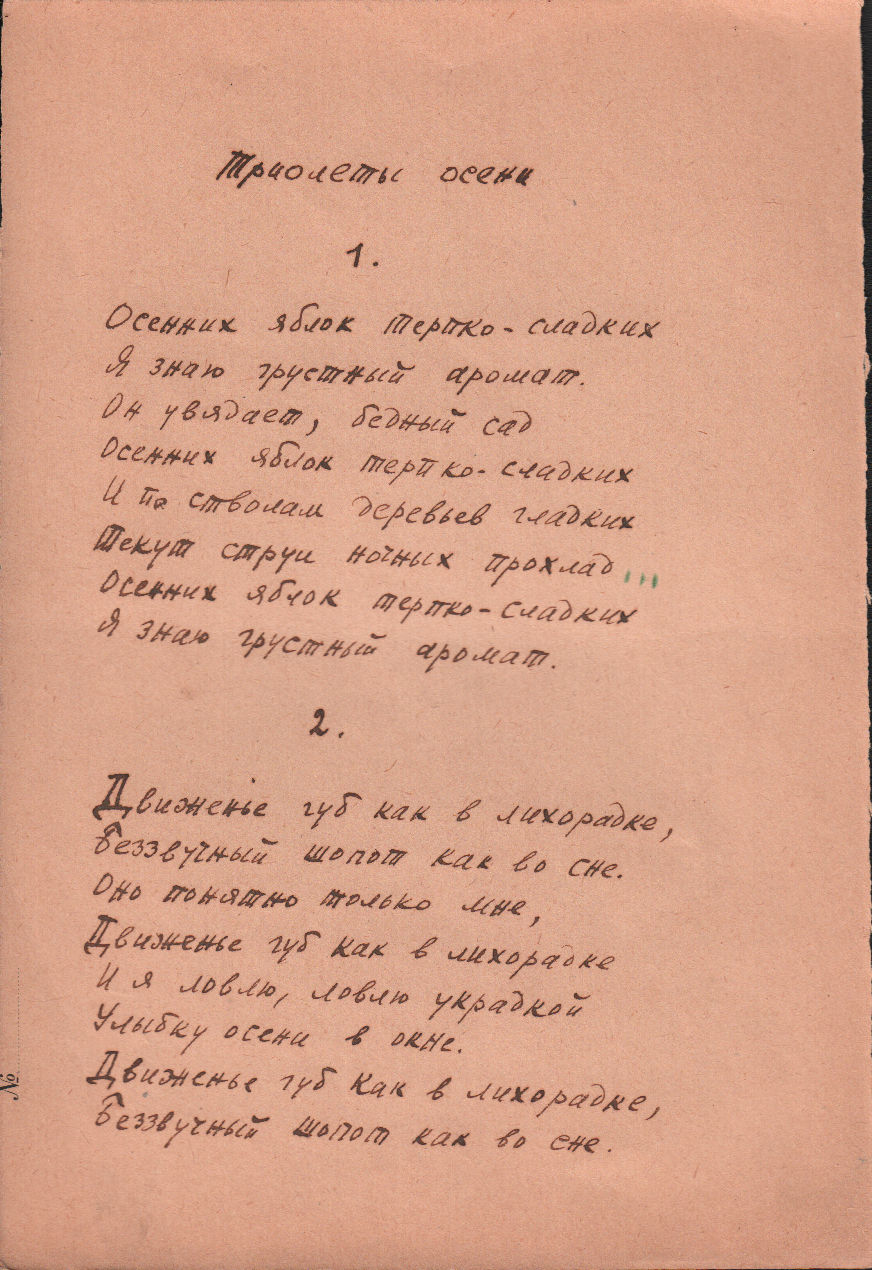 Триолеты осени
1.
Осенних яблок терпко-сладких
Я знаю грустный аромат.
Он увядает, бедный сад
Осенних яблок терпко-сладких
И по стволам деревьев гладких
Текут струи ночных прохлад...
Осенних яблок терпко-сладких
Я знаю грустный аромат.
2.
Движенье губ как в лихорадке,
Беззвучный шопот как во сне.
Оно понятно только мне,
Движенье губ как в лихорадке
И я ловлю, ловлю украдкой
Улыбку осени в окне.
Движенье губ как в лихорадке,
Беззвучный шопот как во сне.
№